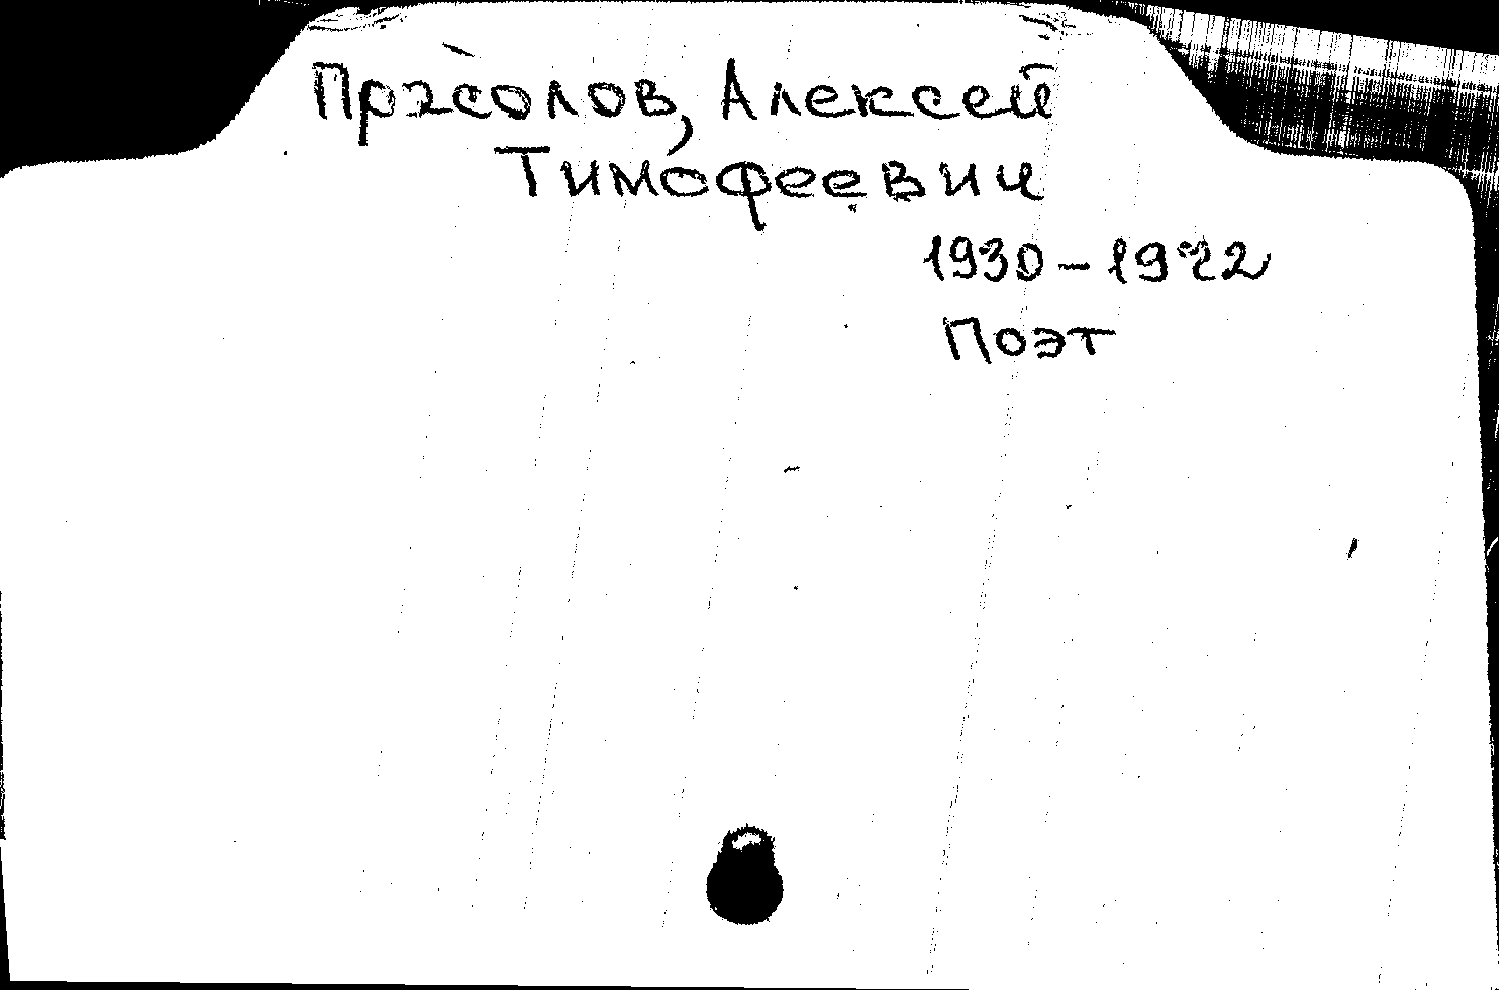 Прасолов, Алексей
Тимофеевич
1930-1972
Поэт